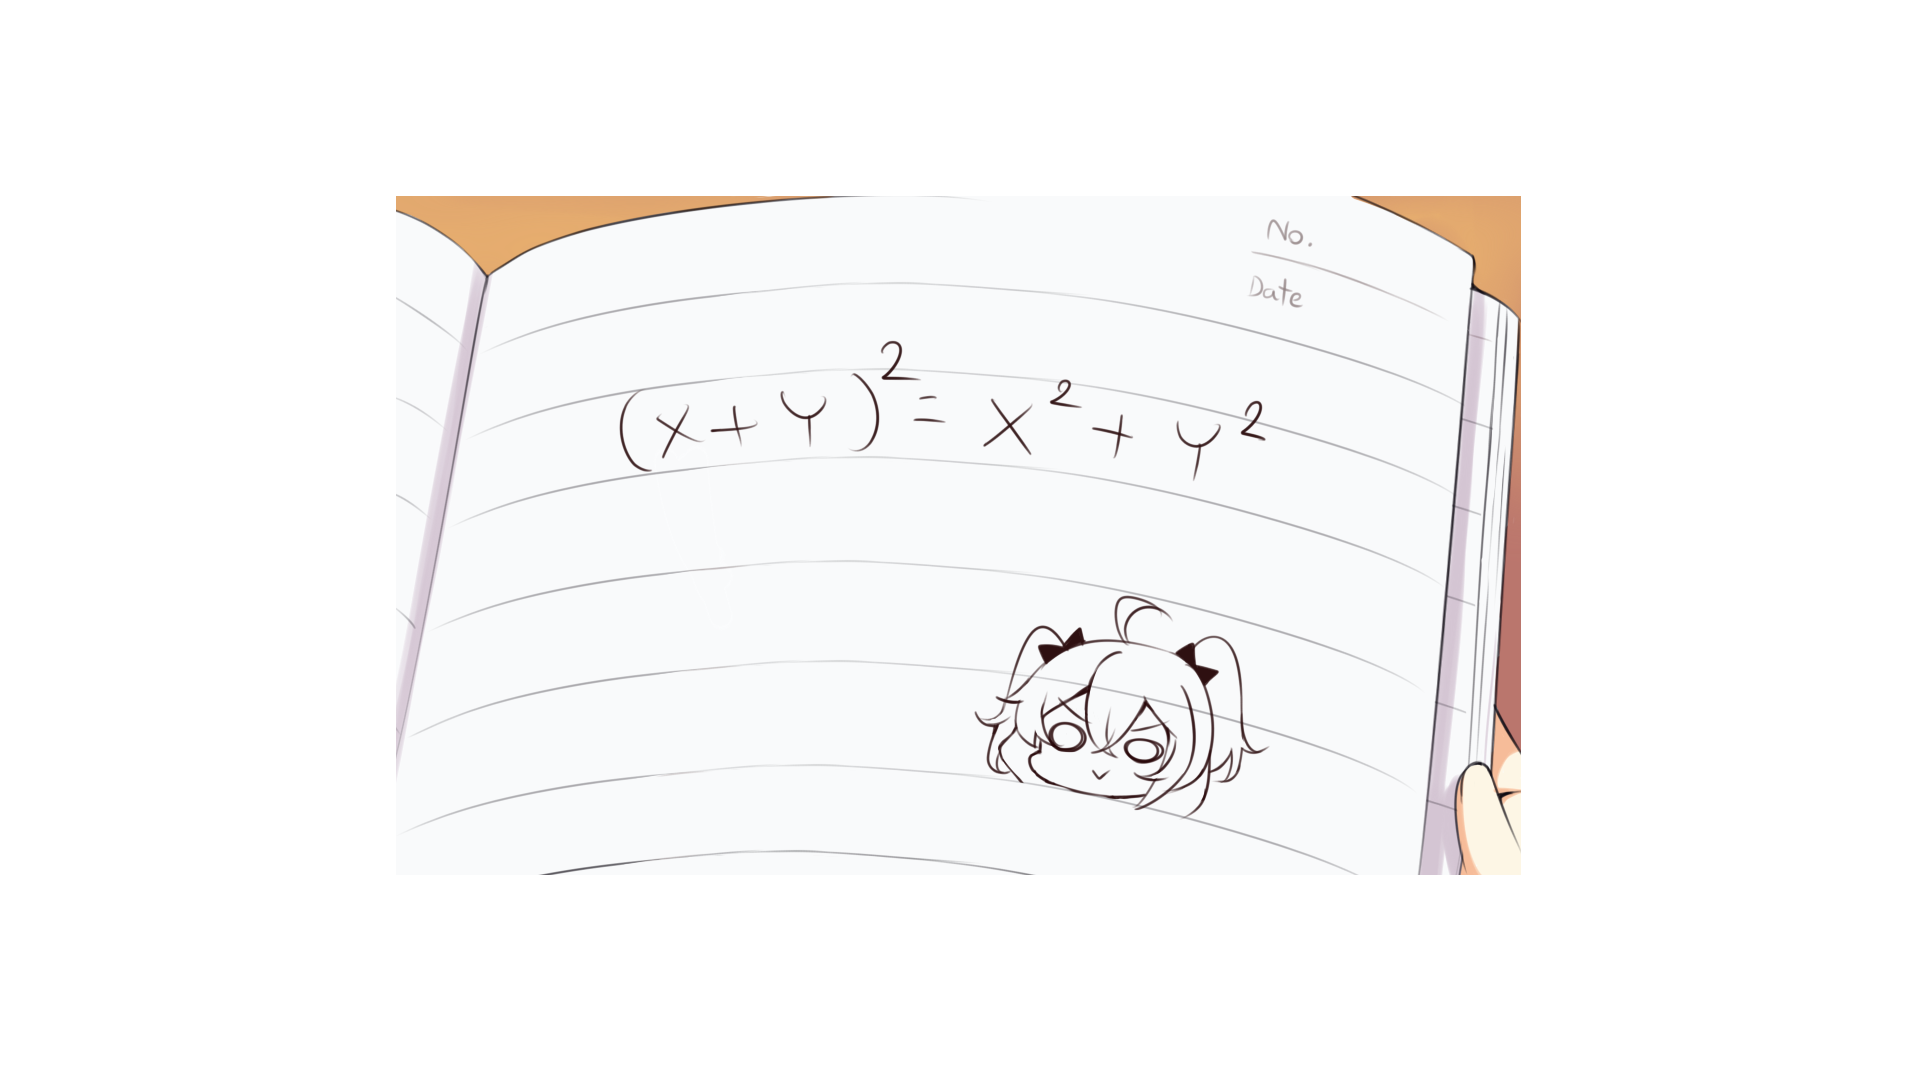 No.
Date
(x+y)² = x² + y²